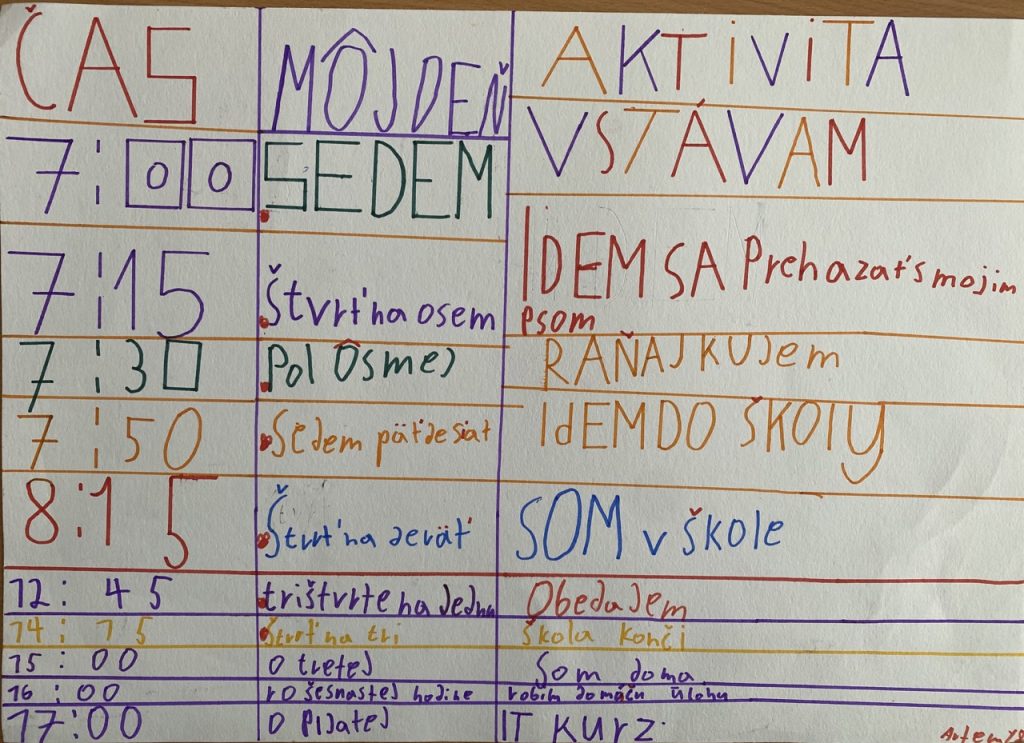 ČAS MÔJ DEŇ AKTIVITA
7:00 SEDEM VSTÁVAM
7:15 Štvrťna osem IDEM SA Prehazať s mojim
psom
7:30 Pol Ôsmej RAŇAJKUJem
7:50 Sedem päťdesiat IdEM DO ŠKOlY
8:15 Štvrť na deväť SOM v škole
12:45 trištvrte na Jednu ObedaJem
14:15 štvrť na tri škola konči
15:00 O tretej Som doma
16:00 o šesnastej hodine robim domáču úlohu
17:00 O PIJatej IT KURZ.
Artem